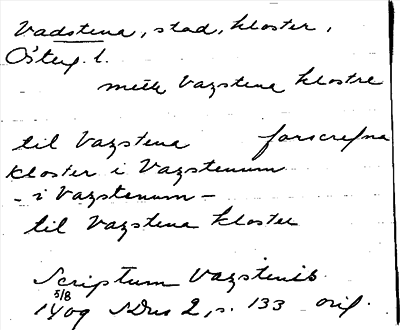 Vadstena, stad, kloster,
Österg. l.
medh Vazstena klostre
til Vazstena forscrefna
kloster i Vazstenum
- i Vazstenum -
til Vazstena kloster
Scriptum Vazstenis.
5/8
1409 SDns 2, s. 133 orig.